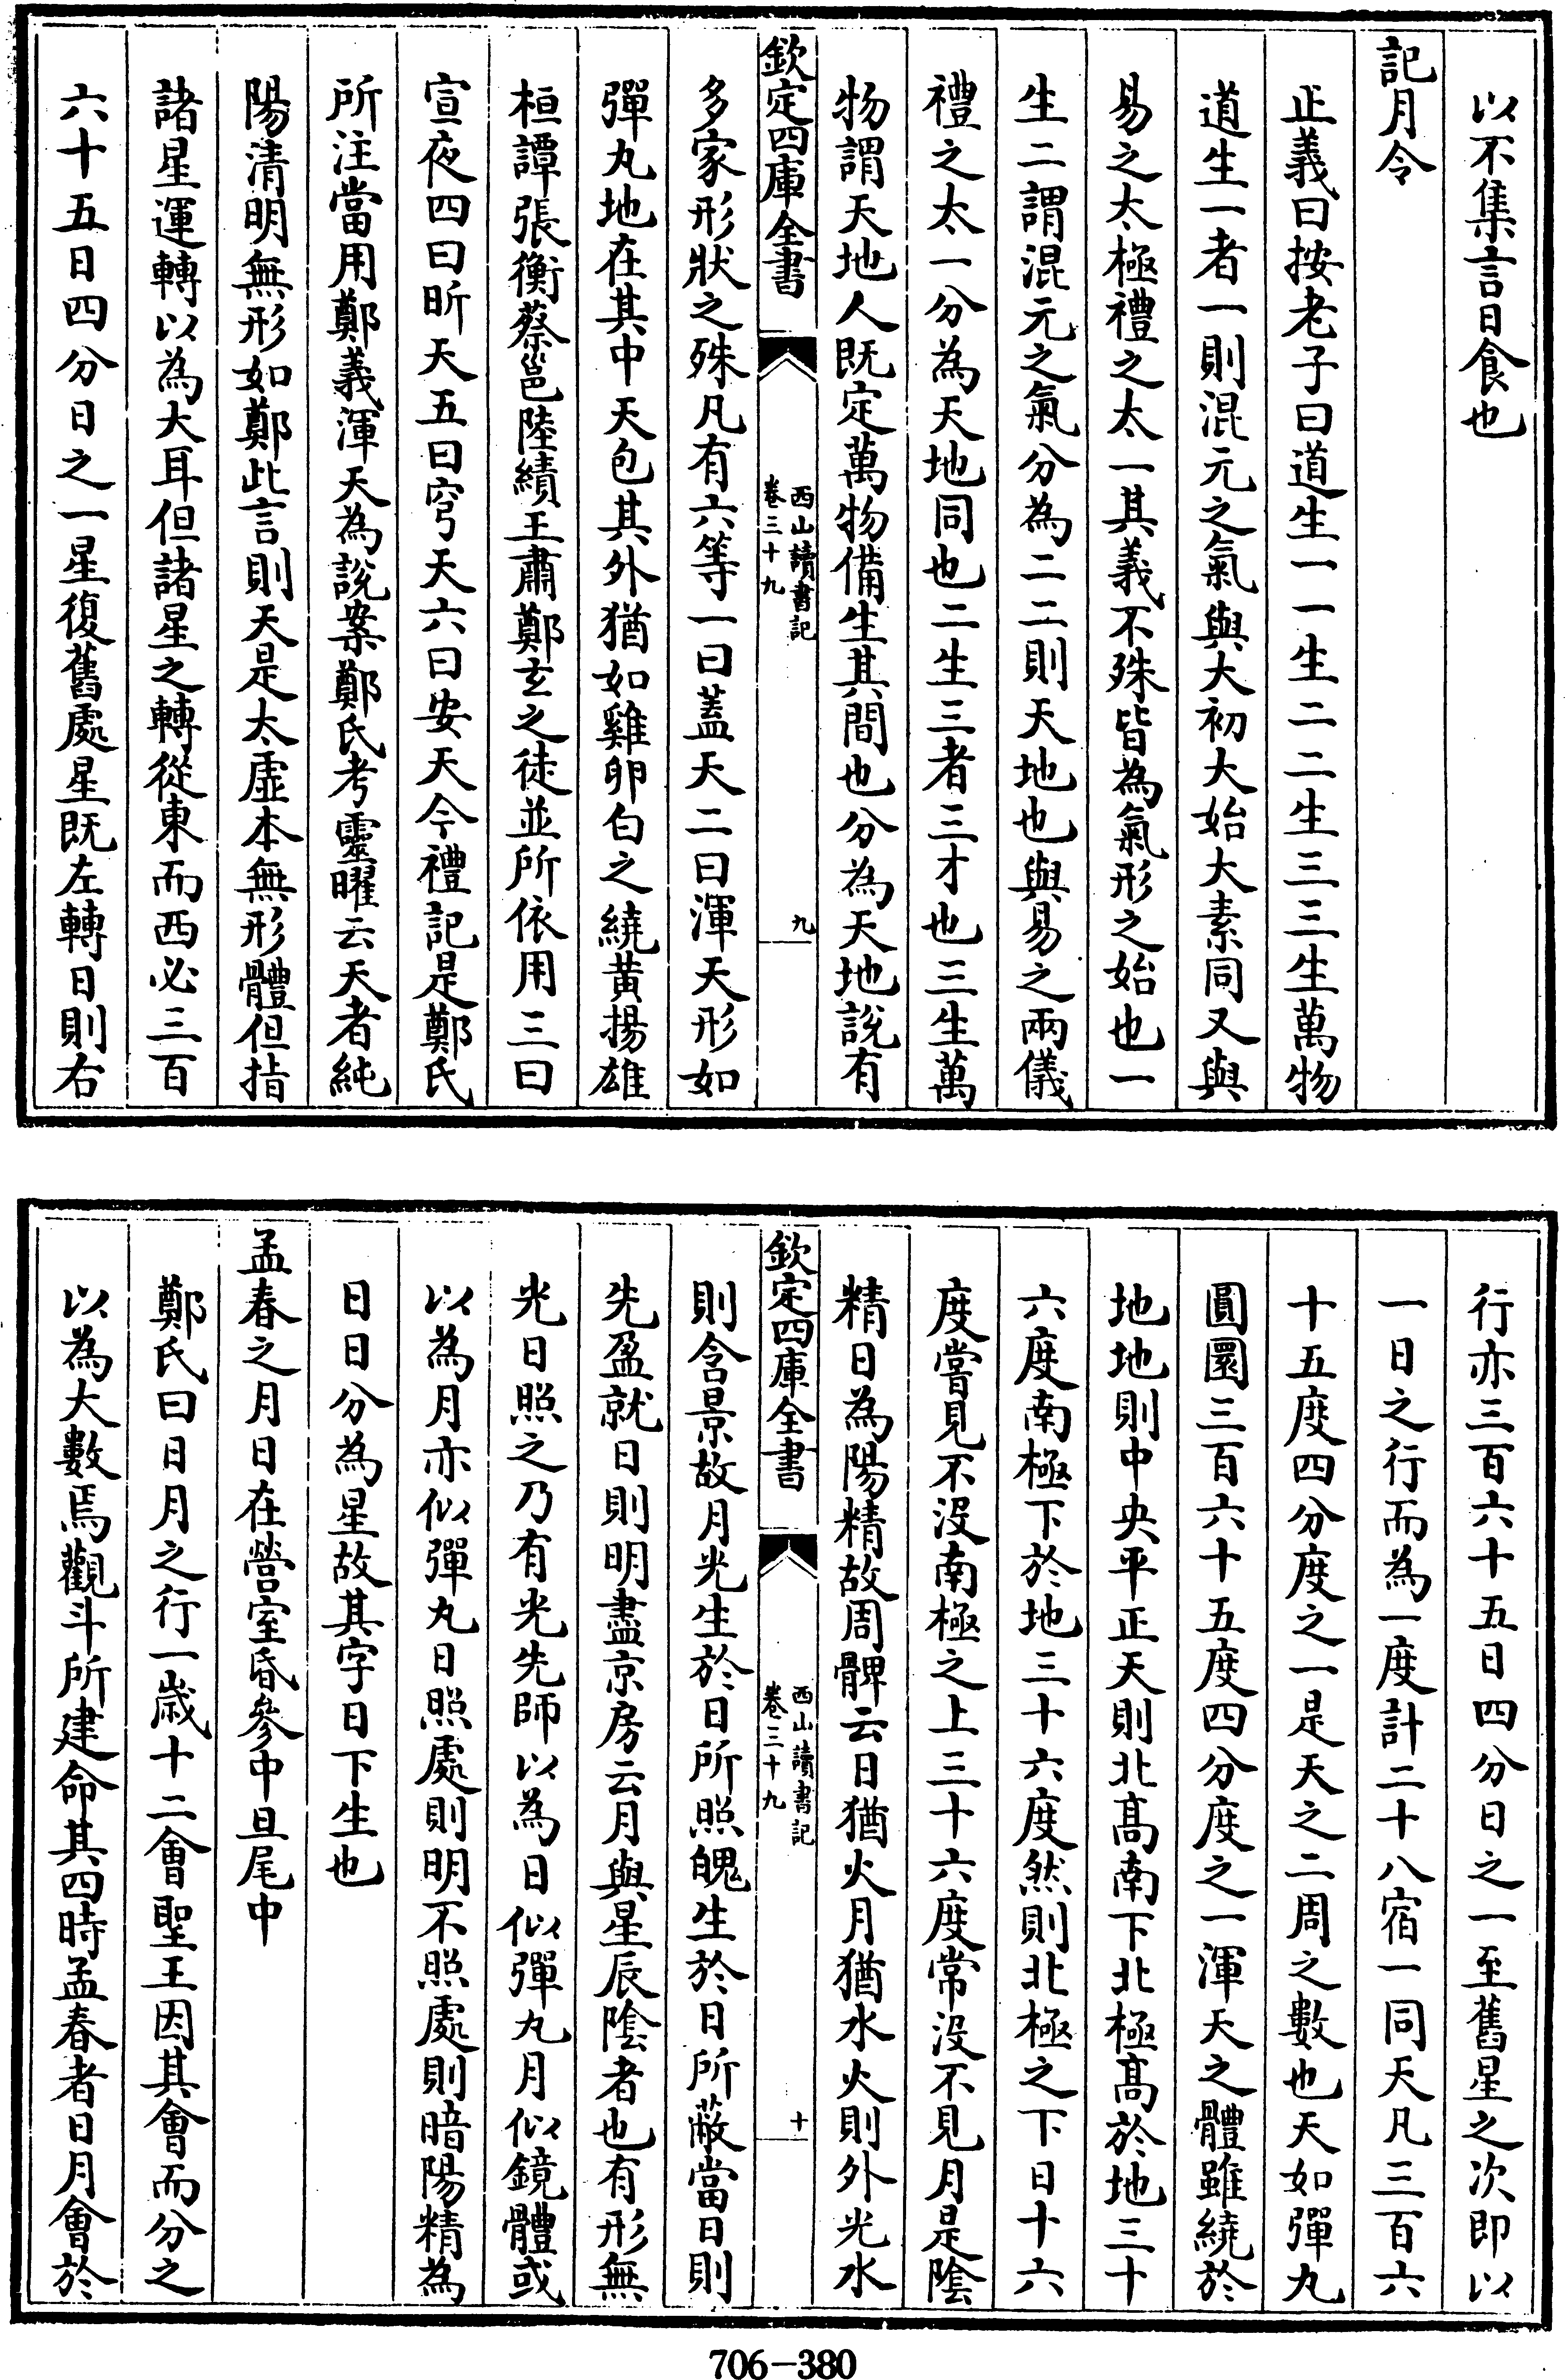 以不集言日食也
記月令
正義曰按老子曰道生一一生二二生三三生萬物
道生一者一則混元之氣與大初大始大素同又與
易之太極禮之太一其義不殊皆為氣形之始也一
生二謂混元之氣分為二二則天地也與易之兩儀
禮之太一分為天地同也二生三者三才也三生萬
物謂天地人既定萬物備生其間也分為天地說有
欽定四庫全書
西山讀書記
卷三十九
九
多家形狀之殊凡有六等一曰蓋天二曰渾天形如
彈丸地在其中天包其外猶如雞卵白之繞黃揚雄
桓譚張衡蔡邕陸績王肅鄭玄之徒並所依用三曰
宣夜四曰昕天五曰穹天六曰安天今禮記是鄭氏
所注當用鄭義渾天為說案鄭氏考靈曜云天者純
陽清明無形如鄭此言則天是太虛本無形體但指
諸星運轉以為大耳但諸星之轉從東而西必三百
六十五日四分日之一星復舊處星既左轉日則右
行亦三百六十五日四分日之一至舊星之次即以
一日之行而為一度計二十八宿一同天凡三百六
十五度四分度之一是天之二周之數也天如彈丸
圓圜三百六十五度四分度之一渾天之體雖繞於
地地則中央平正天則北高南下北極高於地三十
六度南極下於地三十六度然則北極之下日十六
度嘗見不沒南極之上三十六度常沒不見月是陰
精日為陽精故周髀云日猶火月猶水火則外光水
欽定四庫全書
西山讀書記
卷三十九
十
則含景故月光生於日所照魄生於日所蔽當日則
先盈就日則明盡京房云月與星辰陰者也有形無
光日照之乃有光先師以為日似彈丸月似鏡體或
以為月亦似彈丸日照處則明不照處則暗陽精為
日日分為星故其字日下生也
孟春之月日在營室昏參中旦尾中
鄭氏曰日月之行一歲十二會聖王因其會而分之
以為大數焉觀斗所建命其四時孟春者日月會於
706-380